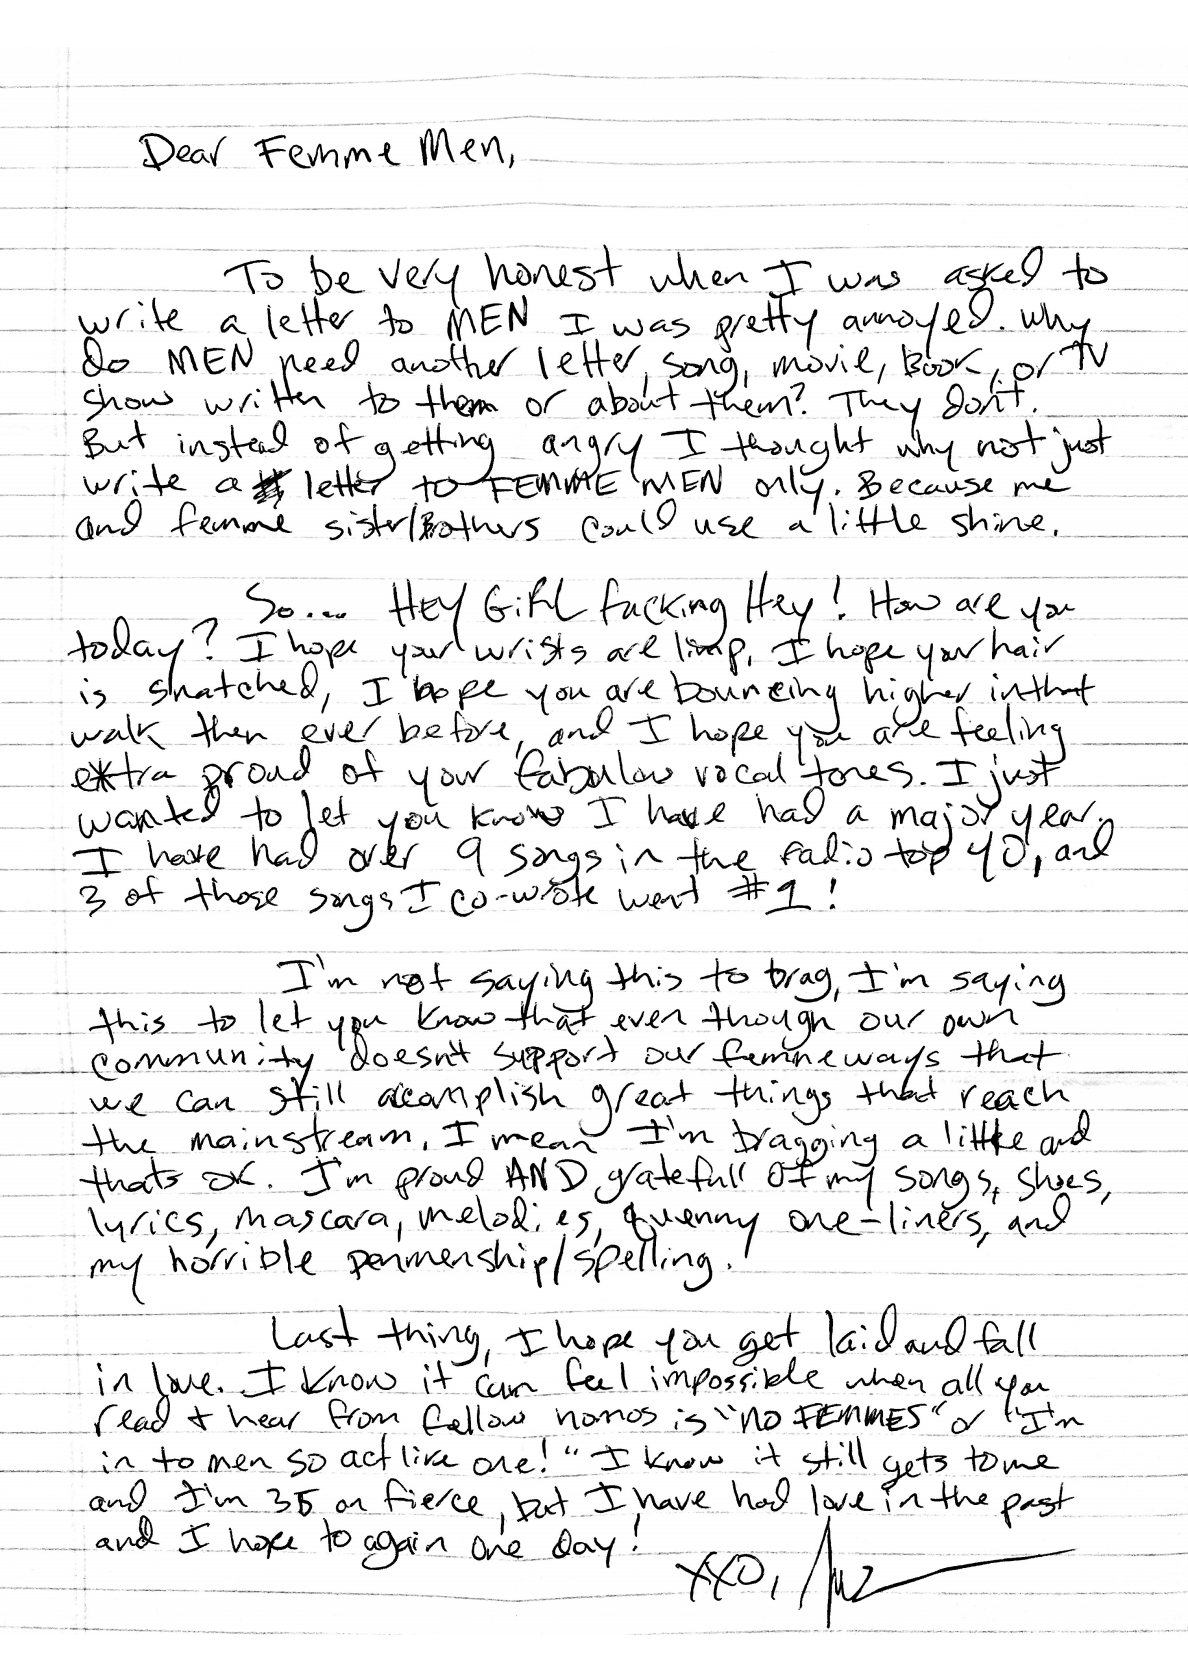 Dear Femme Men,
To be very honest when I was asked to
write a letter to MEN I was pretty annoyed. Why
do MEN need another letter, song, movie, Book, or TV
show written to them or about them? They don't.
But instead of getting angry I thought why not just
write a letter to FEMME MEN only. Because me
and femme sister/Brothers could use a little shine.
So... HEY GiRL fucking Hey! How are you
today? I hope your wrists are limp, I hope your hair
is snatched, I hope you are bouncing higher in that
walk then ever before, and I hope you are feeling
extra proud of your fabulow vocal tones. I just
wanted to let you know I have had a major year.
I have had over 9 songs in the radio top 40, and
3 of those songs I co-wrote went #1!
I'm not saying this to brag, I'm saying
this to let you know that even though our own
community doesn't support our femme ways that
we can still acomplish great things that reach
the mainstream. I mean I'm bragging a little and
thats ok. I'm proud AND gratefull of my songs, shoes,
lyrics, mascara, melodies, quenny one-liners, and
my horrible penmenship/spelling.
Last thing, I hope you get laid and fall
in love. I know it can feel impossible when all you
read & hear from fellow homos is "NO FEMMES" or "I'm
in to men so act like one!" I know it still gets to me
and I'm 35 on fierce, but I have had love in the past
and I hope to again one day!
XXO,